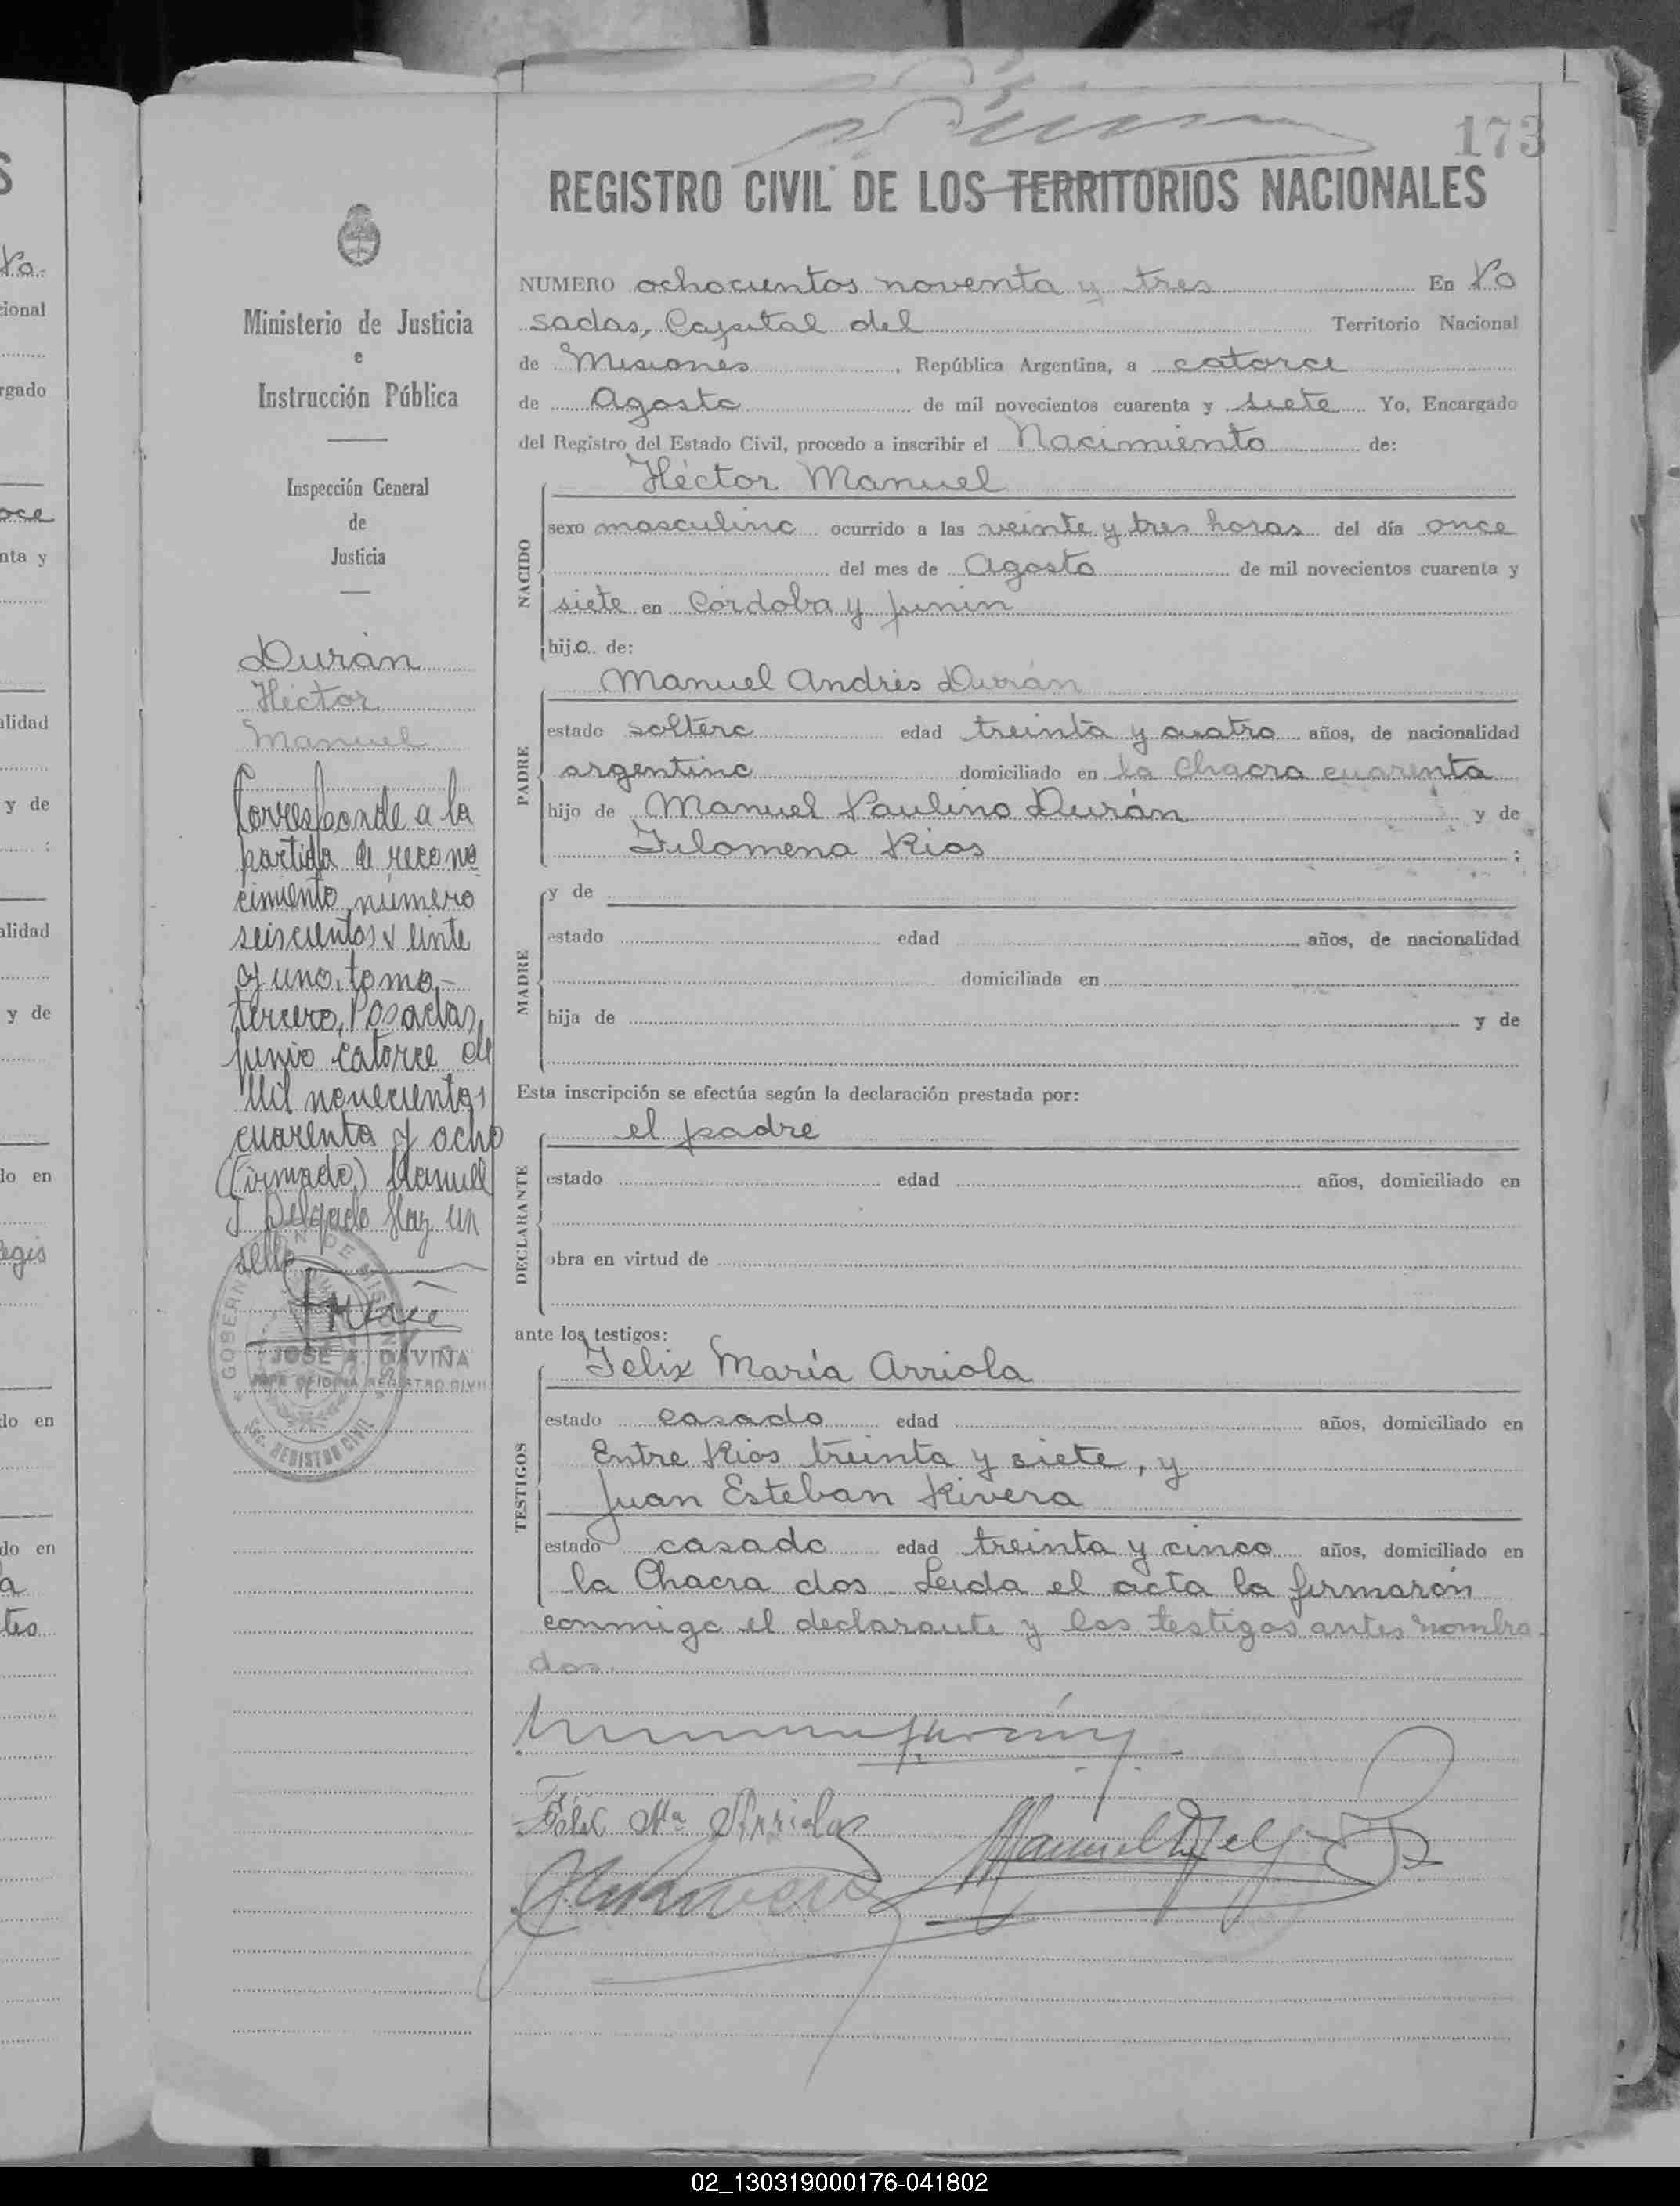 173
REGISTRO CIVIL DE LOS TERRITORIOS NACIONALES
Ministerio de Justicia
e
Instrucción Pública
Inspección General
de
Justicia
Durán
Héctor
Manuel
Corresponde a la
partida de recono
cimiento número
seiscientos veinte
y uno, tomo
tercero, Posadas,
junio catorce de
mil novecientos
cuarenta y ocho
(Firmado) Manuel
J Delgado Hay un
sello
GOBERN DE MISIONES
SEC. REGISTRO CIVIL
JOSE A. DAVIÑA
JEFE OFICINA REGISTRO CIVIL
NUMERO ochocientos noventa y tres En Po
sadas, Capital del Territorio Nacional
de Misiones, República Argentina, a catorce
de Agosto de mil novecientos cuarenta y siete Yo, Encargado
del Registro del Estado Civil, procedo a inscribir el Nacimiento de:
NACIDO
Héctor Manuel
sexo masculino ocurrido a las veinte y tres horas del día once
del mes de Agosto de mil novecientos cuarenta y
siete en Córdoba y Junin
hijo de:
PADRE
Manuel Andrés Durán
estado soltero edad treinta y cuatro años, de nacionalidad
argentino domiciliado en la Chacra cuarenta
hijo de Manuel Paulino Durán y de
Filomena Rios ;
MADRE
y de
estado edad años, de nacionalidad
domiciliada en
hija de y de
Esta inscripción se efectúa según la declaración prestada por:
DECLARANTE
el padre
estado edad años, domiciliado en
obra en virtud de
ante los testigos:
TESTIGOS
Felix María Arriola
estado casado edad años, domiciliado en
Entre Rios treinta y siete, y
Juan Esteban Rivera
estado casado edad treinta y cinco años, domiciliado en
la Chacra dos. Leida el acta la firmaron
conmigo el declarante y los testigos antes nombra
dos.
Félix Ma Arriola
02_130319000176-041802